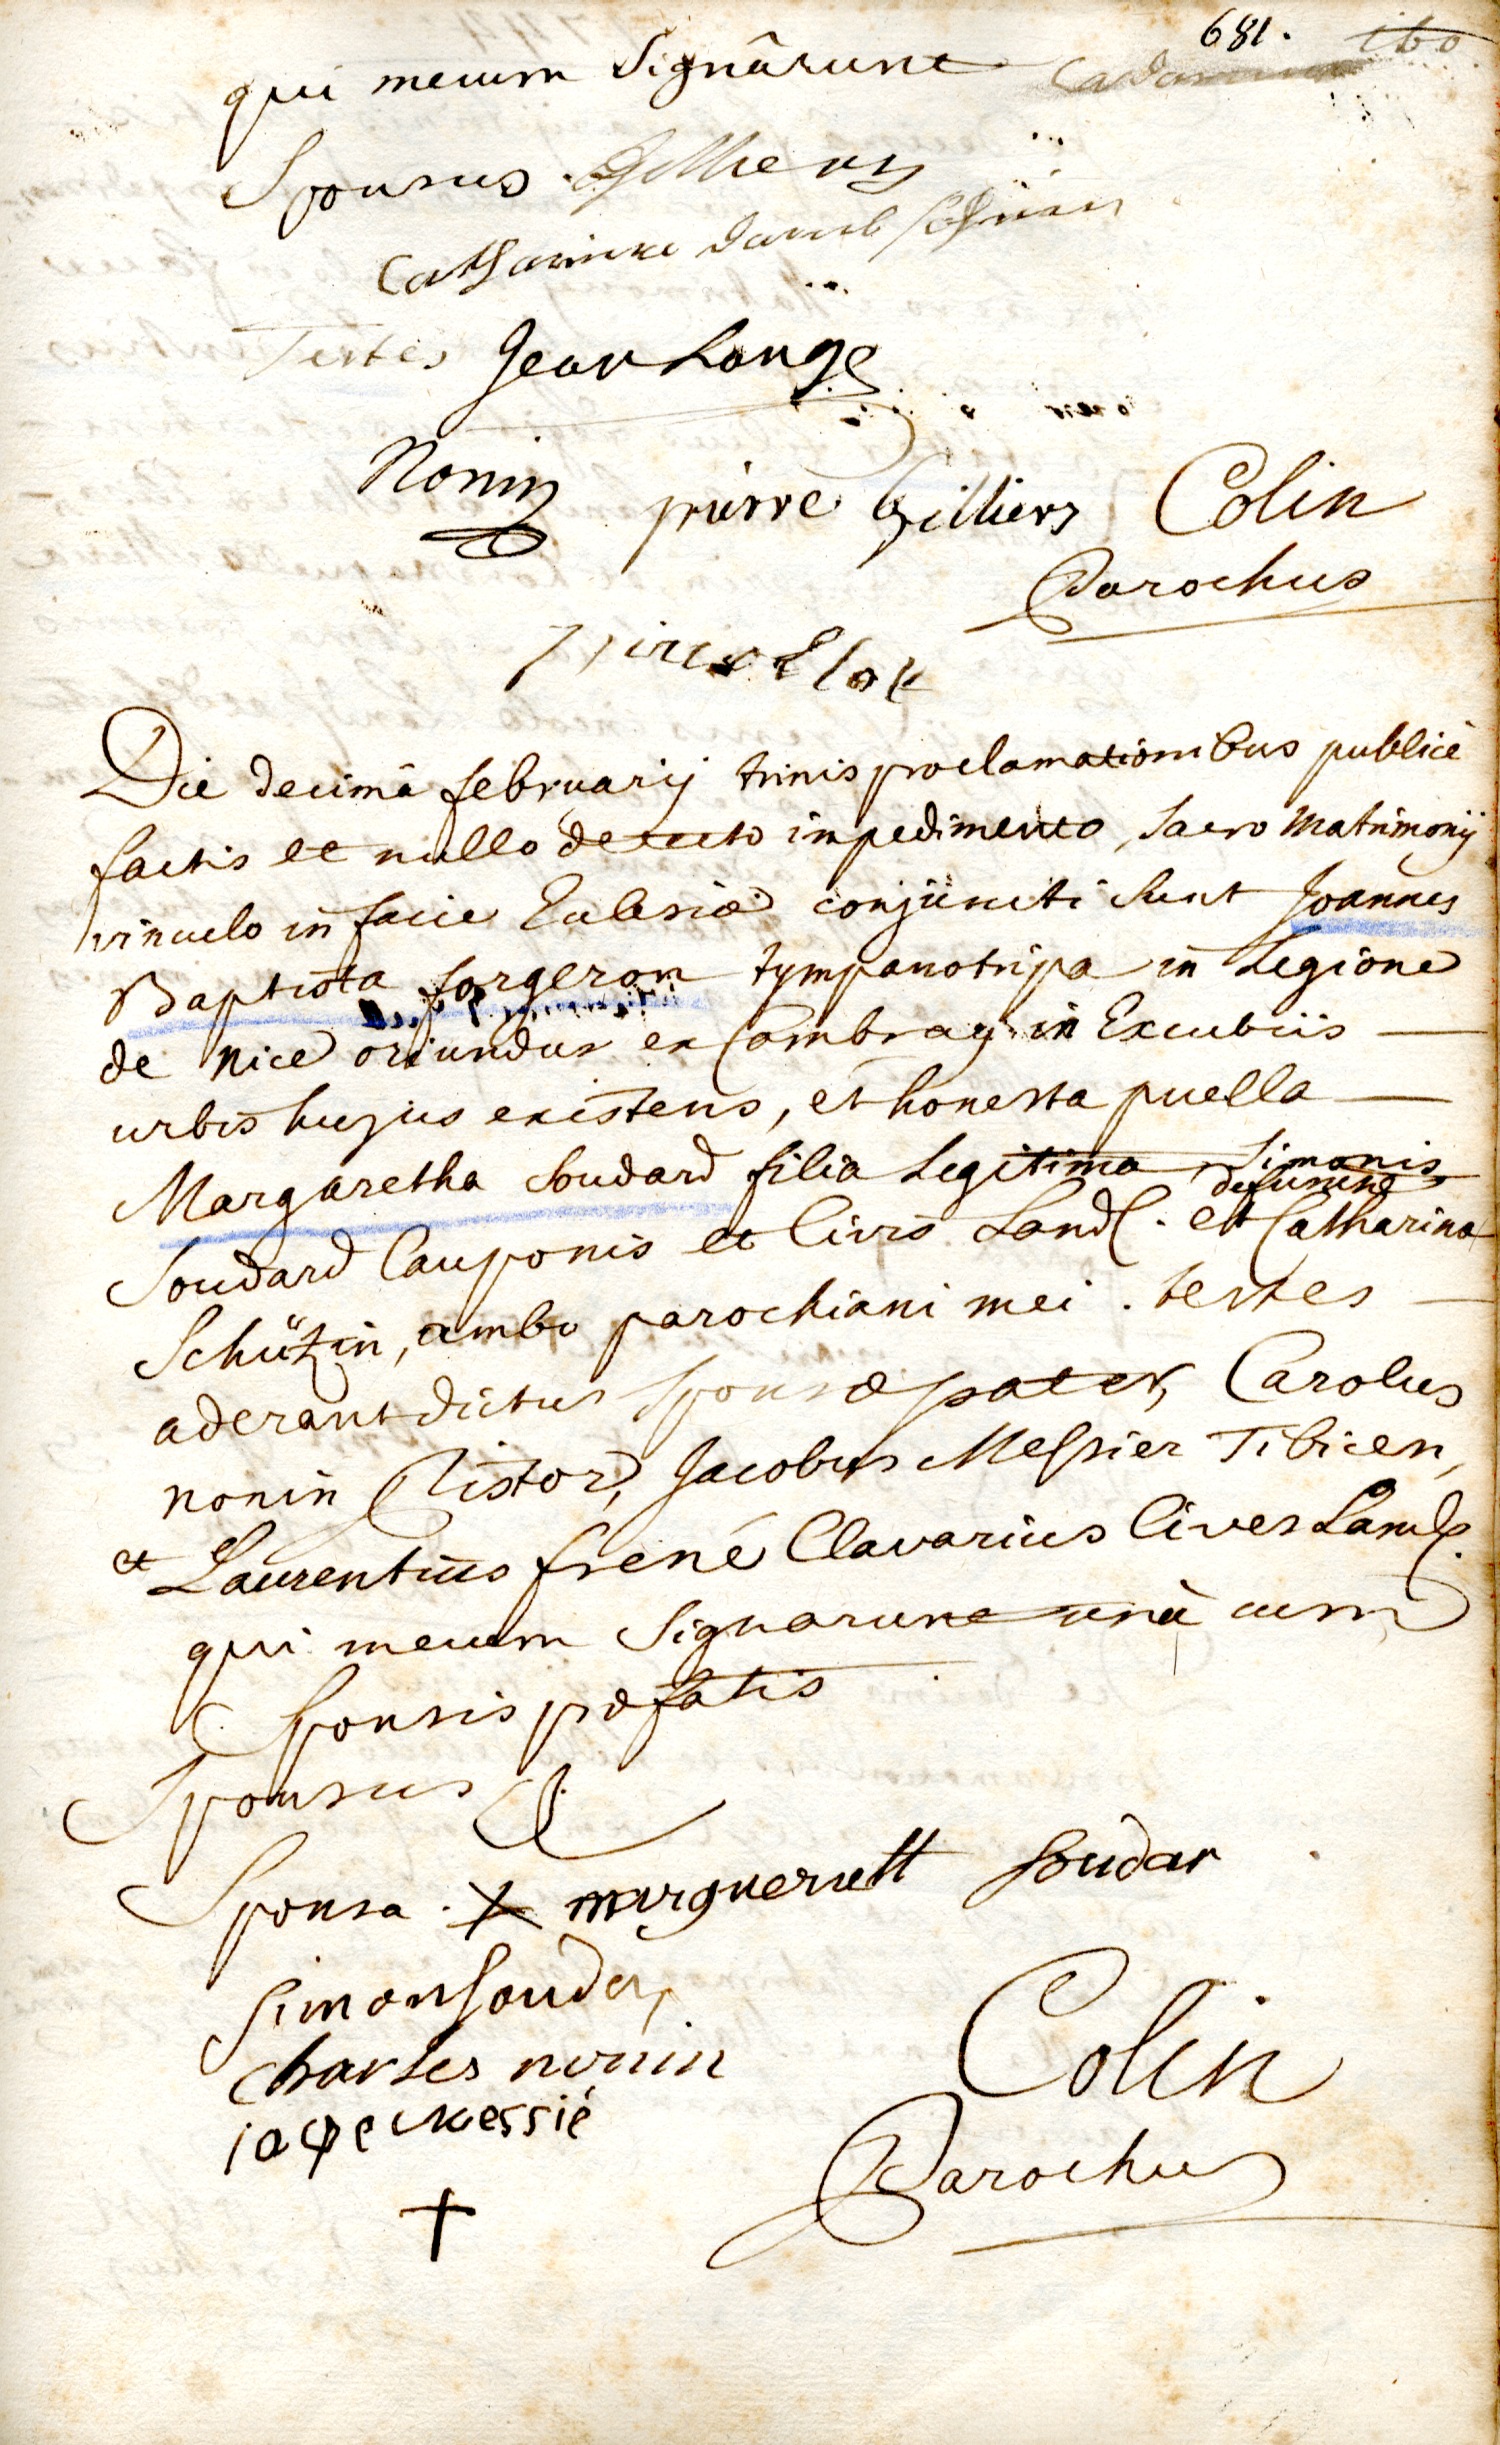 681.
qui mecum Signârunt
Sponsus
Testes Jean Lange
Nonin pierre Gilliers Colin
Parochus
Die decimâ februarij trinis proclamationibus publicè
factis et nullo detecto impedimento, Sacro Matrimonij
vinculo in facie Eclesiæ conjuncti Sunt Joannes
Baptista forgeron tympanotripa in Legione
de Nice oriundus ex Cambray in Excubiis —
urbis hujus existens, et honesta puella —
Margaretha Soudard filia Legitima Simonis
Soudard Cauponis et Civis Land. et defunctæ Catharina
Schützin, ambo parochiani mei. testes —
aderant dictus Sponsæ pater, Carolus
nonin Pistor, Jacobus Messier Tibicen,
et Laurentius frené Clavarius Cives Land.
qui mecum Signarunt unà cum
Sponsis præfatis
Sponsus
Sponsa. X marguerett Soudar
Simon Souder
Charles nonin Colin
iaqe Messié Parochus
†